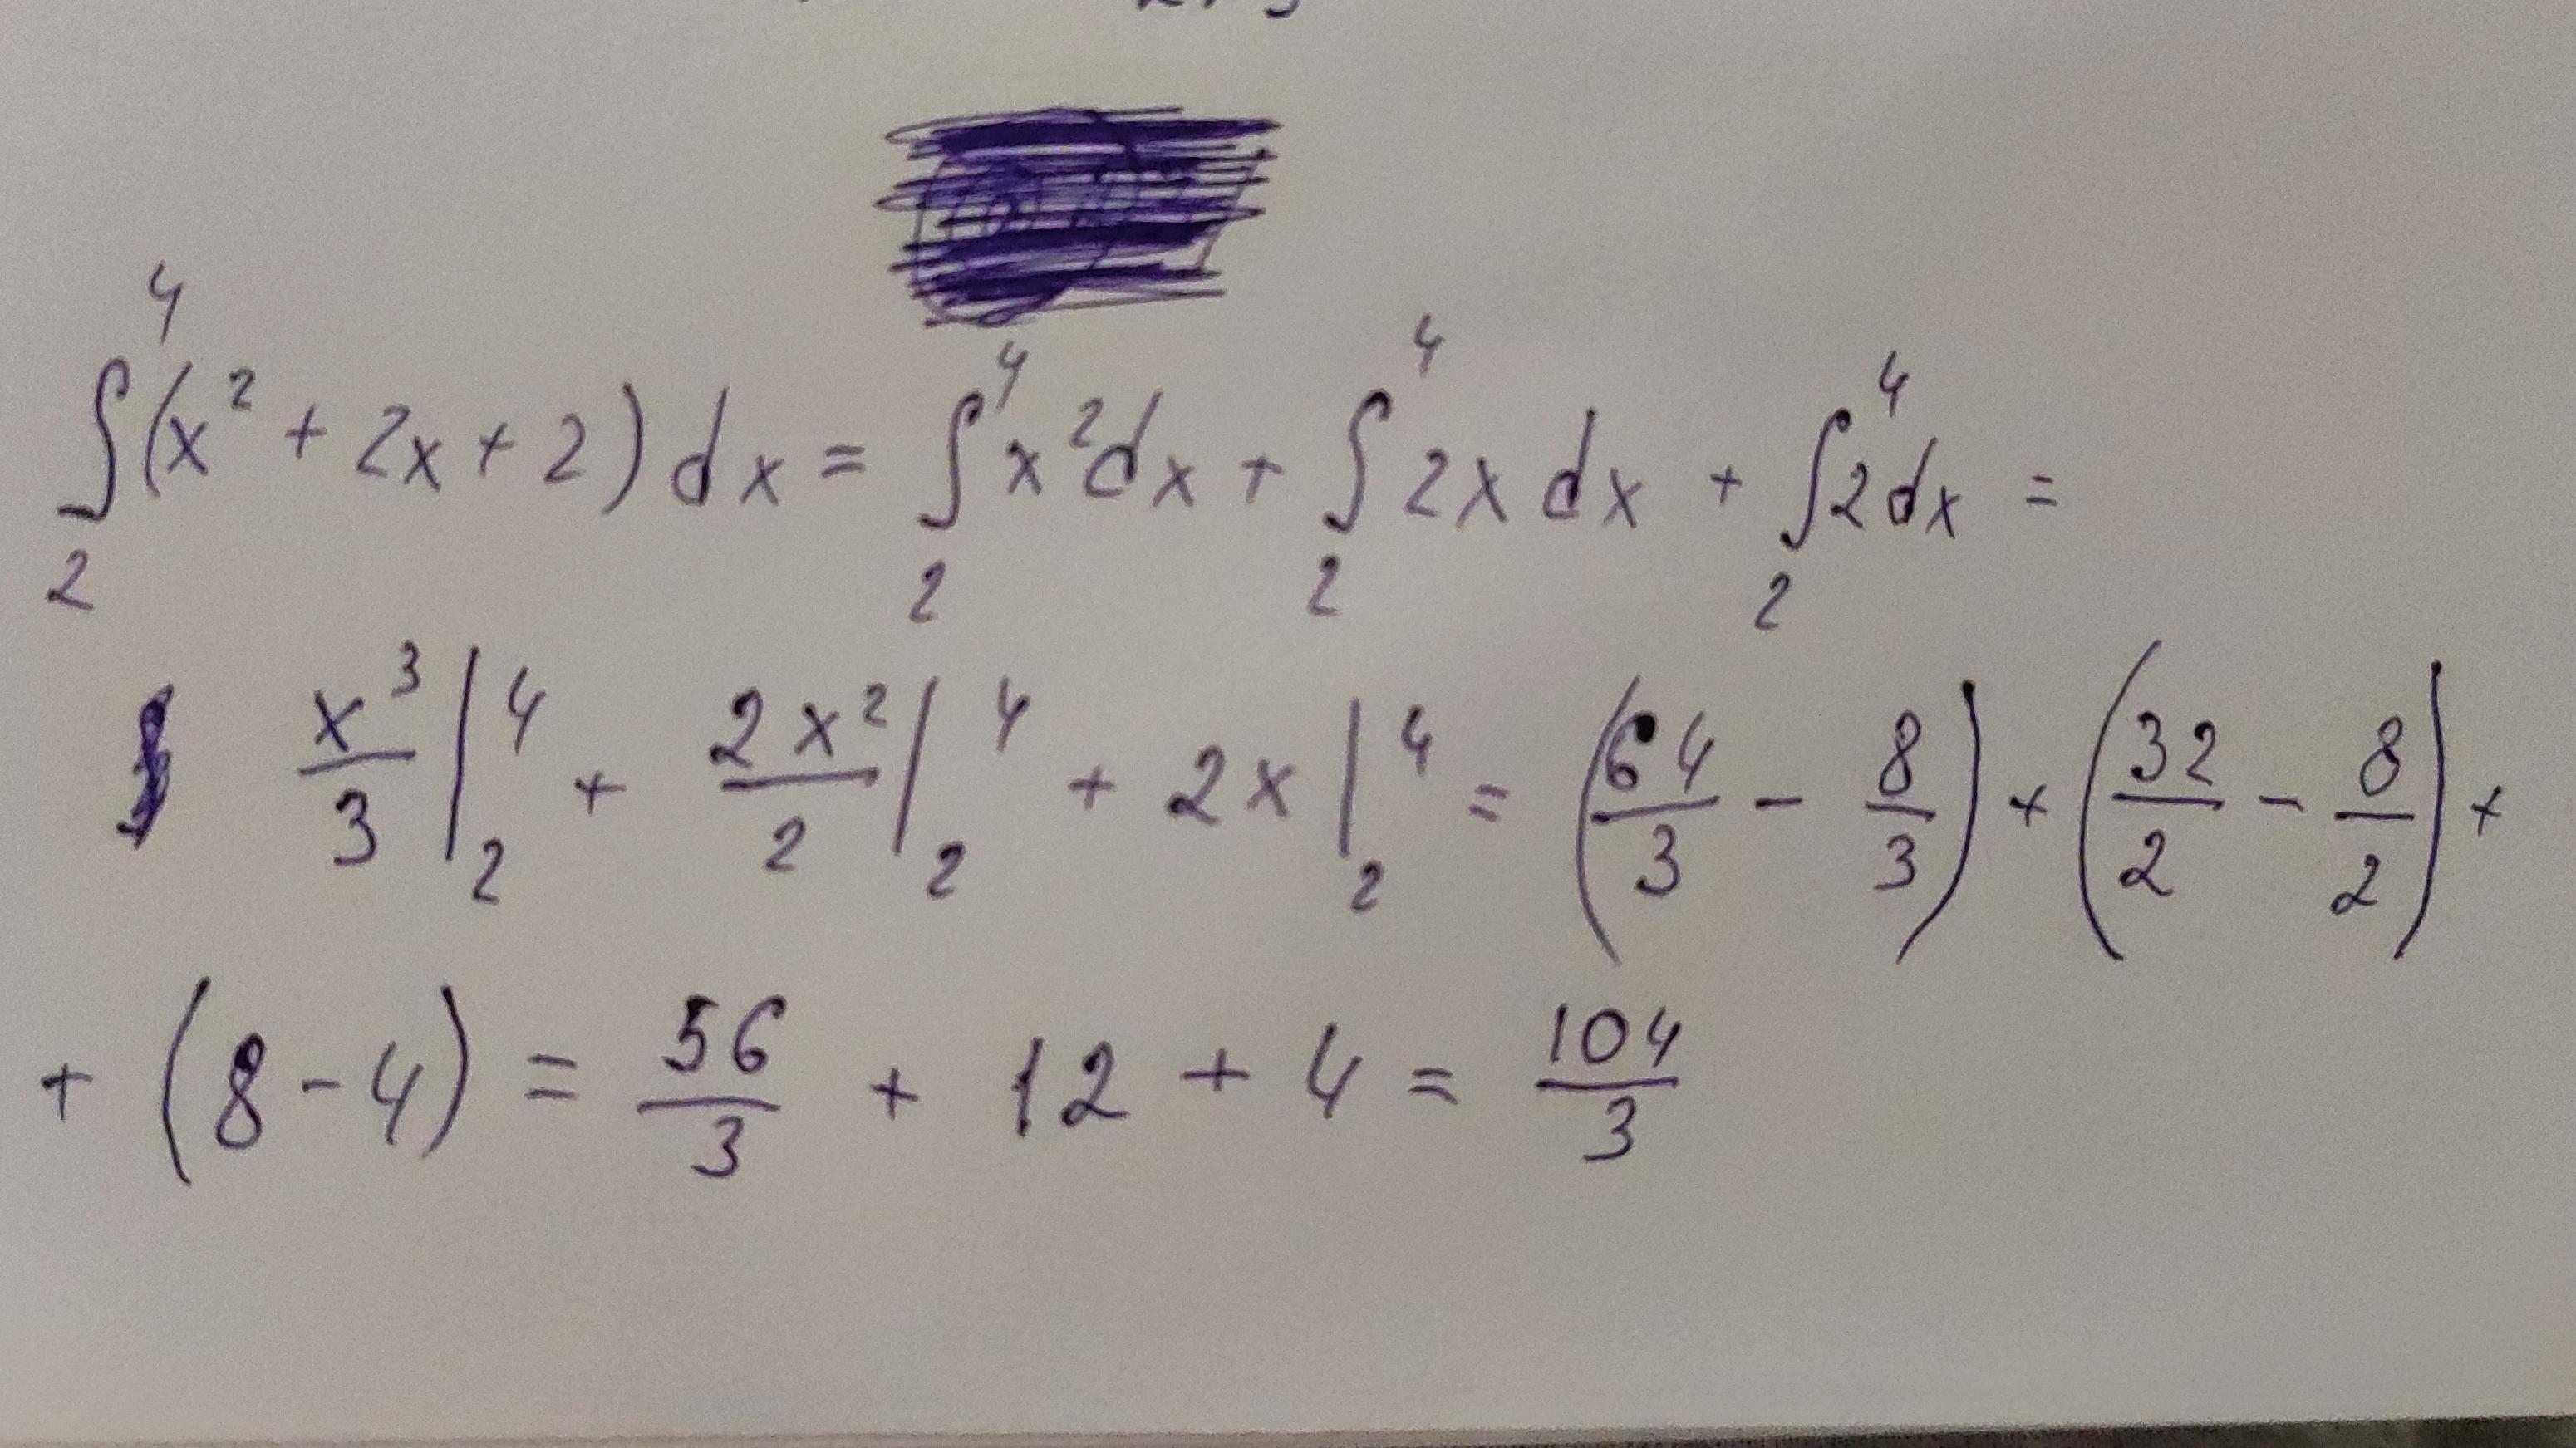 ∫₂⁴ (x² + 2x + 2) dx = ∫₂⁴ x² dx + ∫₂⁴ 2x dx + ∫₂⁴ 2 dx =
x³/3 |₂⁴ + 2x²/2 |₂⁴ + 2x |₂⁴ = (64/3 − 8/3) + (32/2 − 8/2) +
+ (8 − 4) = 56/3 + 12 + 4 = 104/3